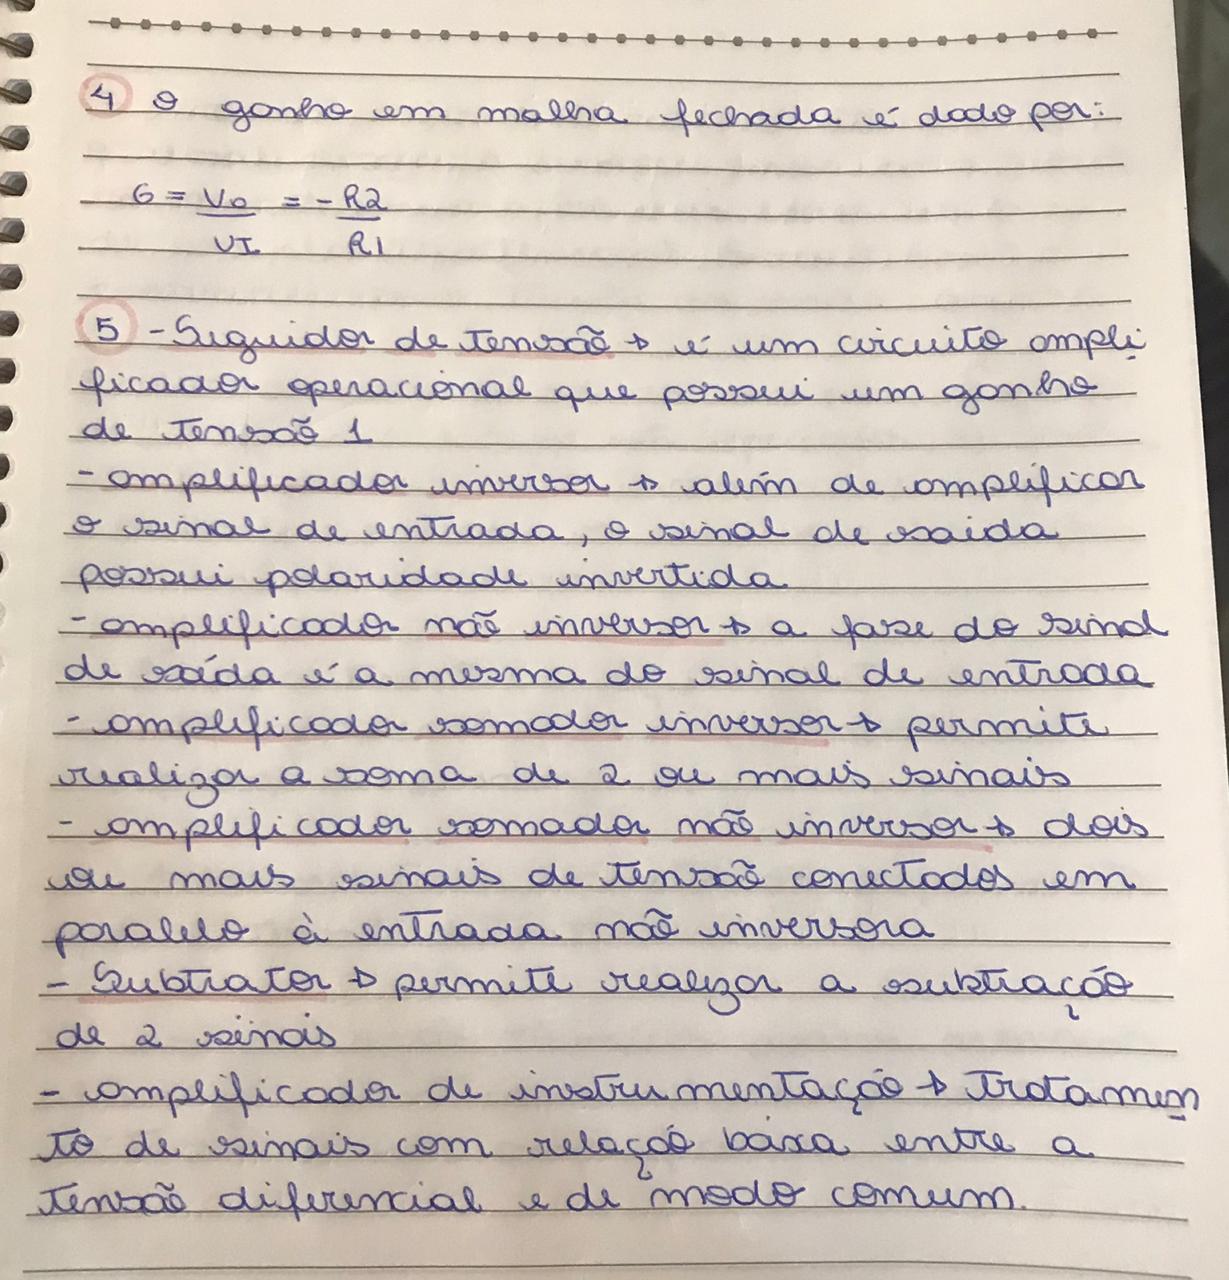 4 O ganho em malha fechada é dado por:
G = Vo = - R2
VI R1
5 - Seguidor de tensão → é um circuito ampli
ficador operacional que possui um ganho
de tensão 1
- amplificador inversor → além de amplificar
o sinal de entrada, o sinal de saida
possui polaridade invertida
- amplificador não inversor → a fase do sinal
de saída é a mesma do sinal de entrada
- amplificador somador inversor → permite
realizar a soma de 2 ou mais sinais
- amplificador somador não inversor → dois
ou mais sinais de tensão conectados em
paralelo à entrada não inversora
- Subtrator → permite realizar a subtração
de 2 sinais
- amplificador de instrumentação → tratamen
to de sinais com relação baixa entre a
tensão diferencial e de modo comum.